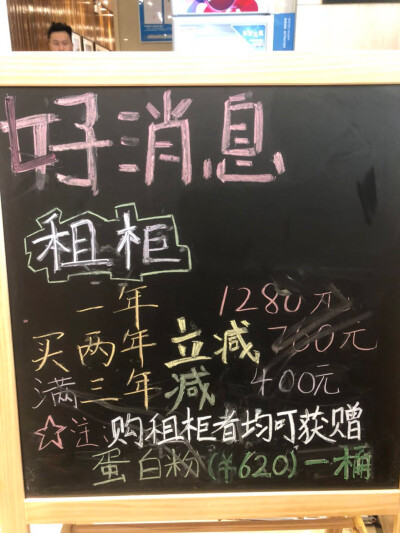 好消息
租柜
一年 1280元
买两年立减700元
满三年减400元
☆注:购租柜者均可获赠
蛋白粉(¥620)一桶